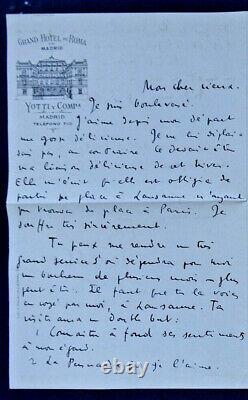 GRAND HOTEL DE ROMA
MADRID
YOTTI Y COMPª
MADRID
TELEFONO 710
Mon cher vieux.
Je suis bouleversé.
J'aime depuis mon départ
ma gosse délicieuse. Je ne lui déplais
pas, au contraire. Je devais être
ma liaison délicieuse de cet hiver.
Elle m'écrit qu'elle est obligée de
partir se placer à Lausanne n'ayant
pu trouver de place à Paris. Je
souffre très sincèrement.
Tu peux me rendre un très
grand service d'où dépendra pour moi
un bonheur de plusieurs mois - plus
peut être. Il faut que tu la voies
envoyé par moi, à Lausanne. Ta
visite aura un double but:
1 Connaître à fond ses sentiments
à mon égard.
2 La persuader que je l'aime.
© ebay